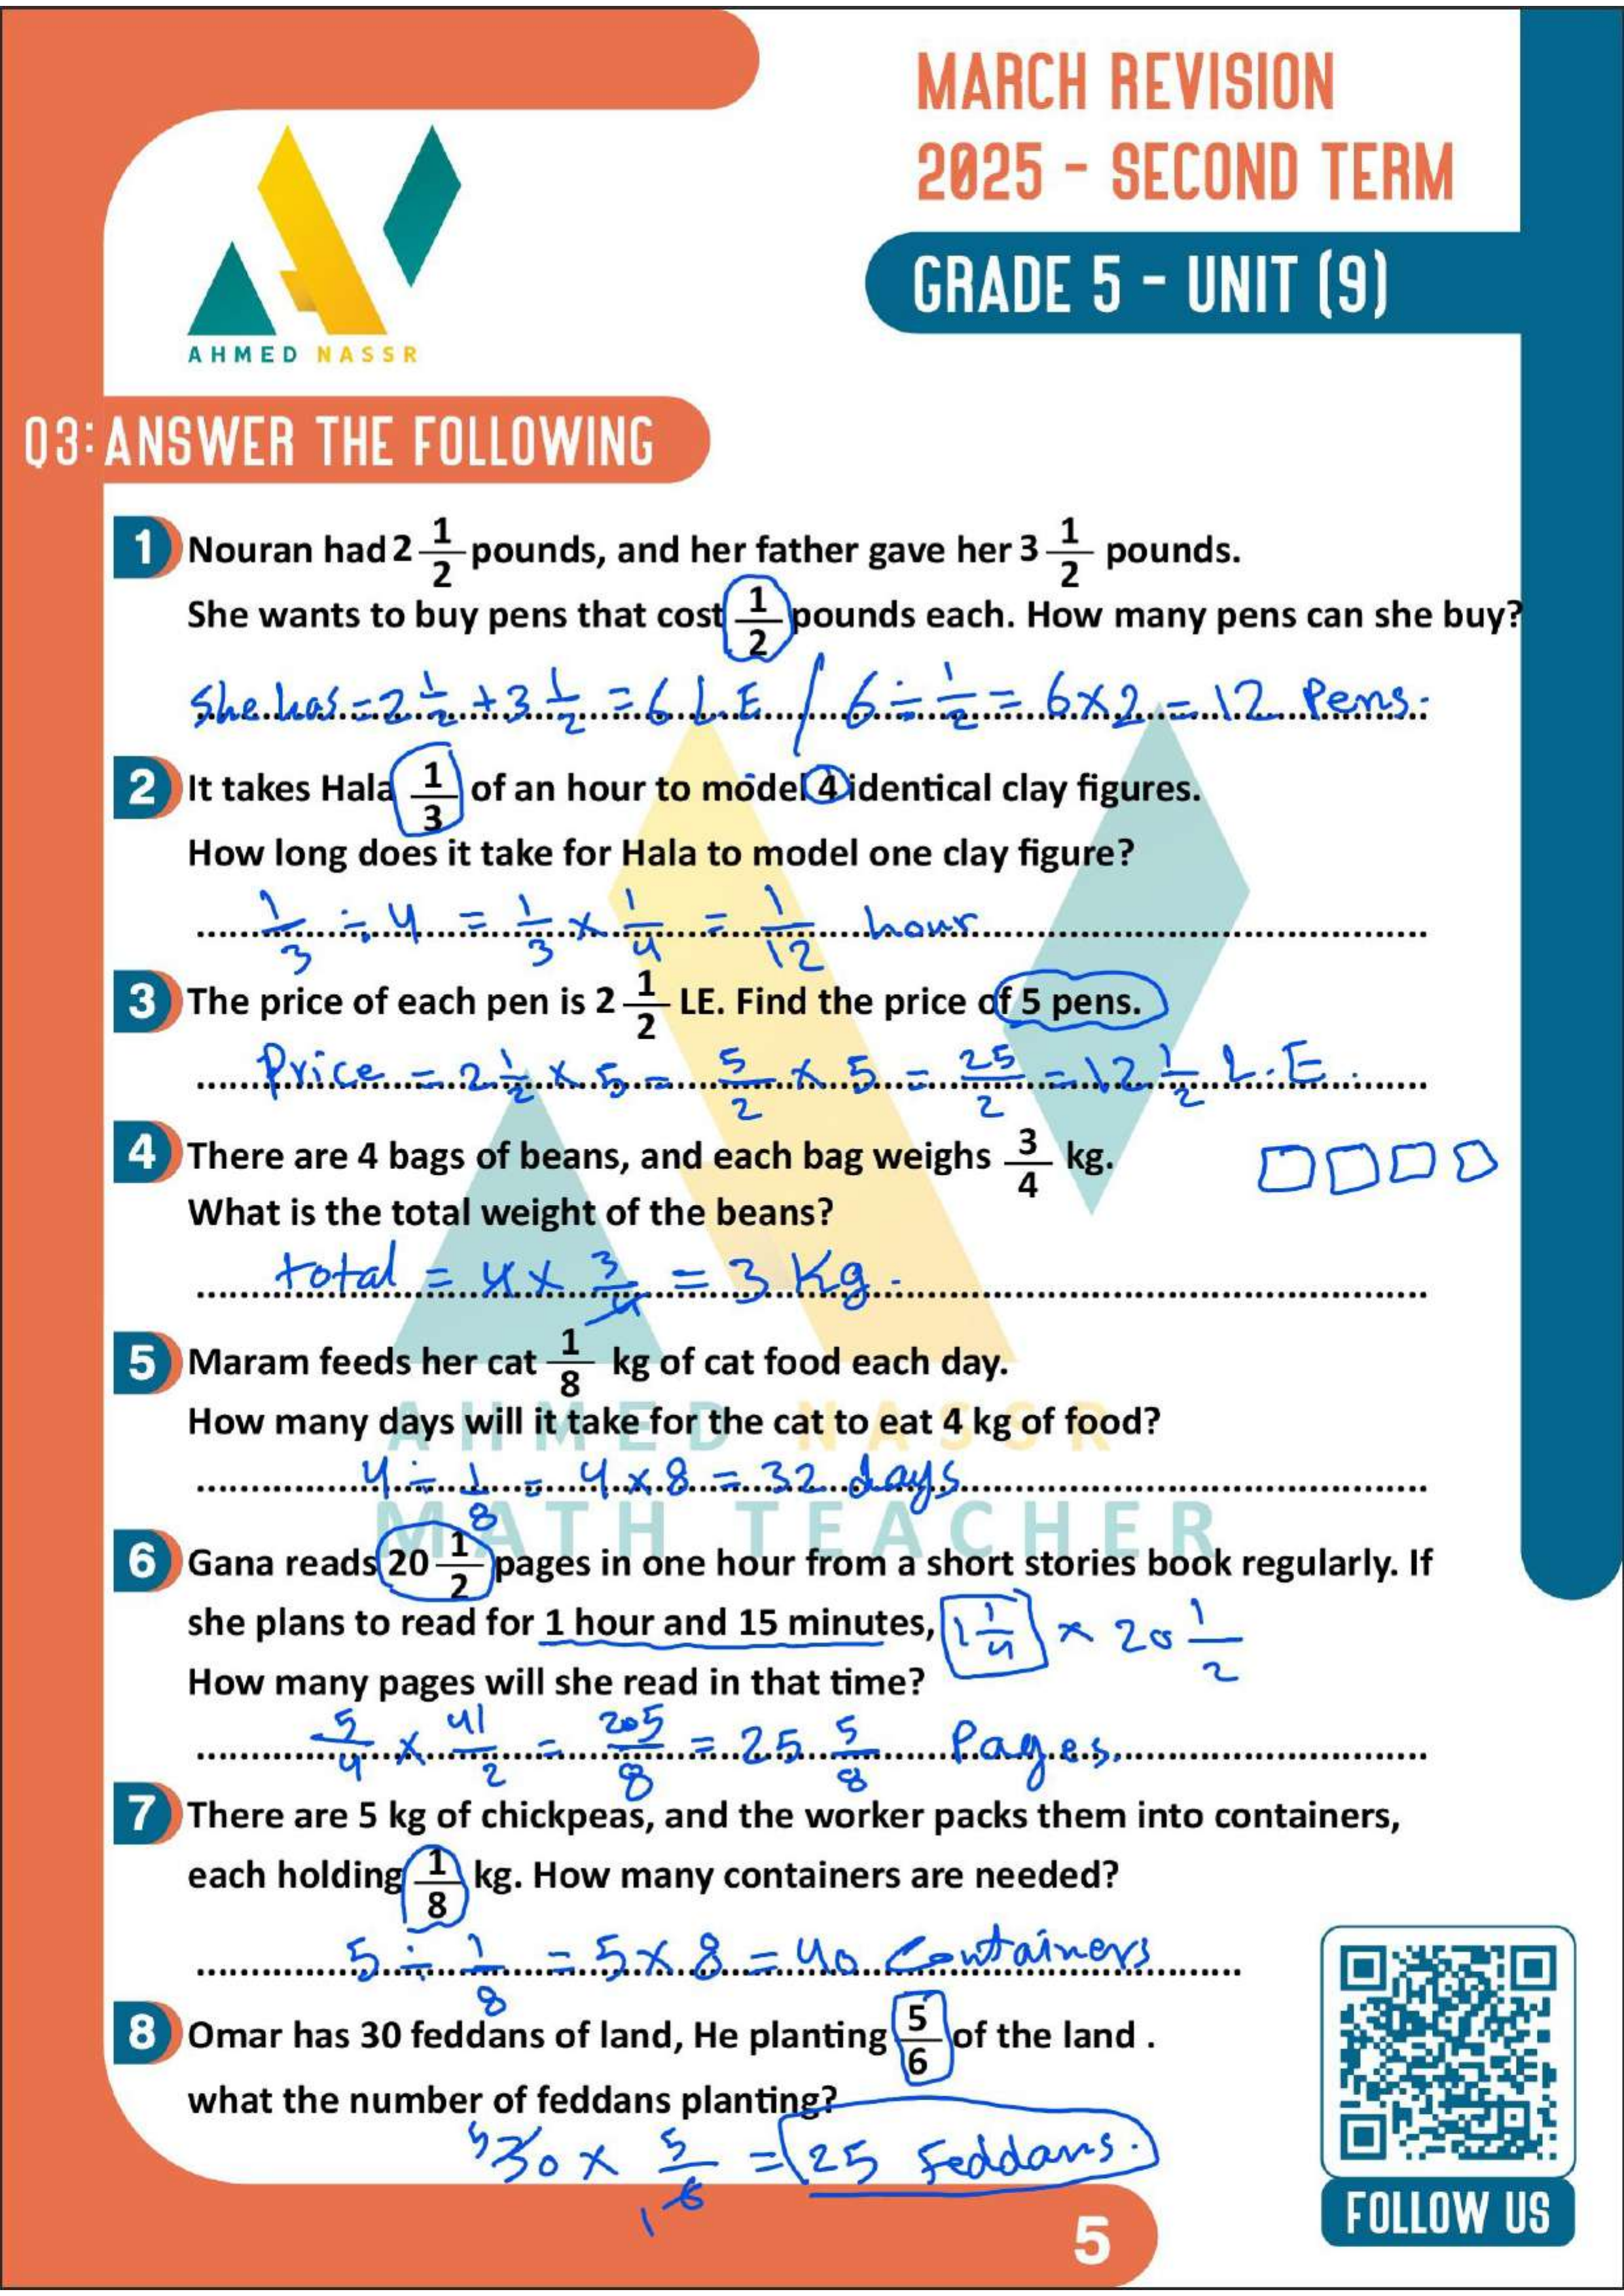 MARCH REVISION
2025 - SECOND TERM
GRADE 5 - UNIT (9)
AHMED NASSR
Q3: ANSWER THE FOLLOWING
1 Nouran had 2 1/2 pounds, and her father gave her 3 1/2 pounds.
She wants to buy pens that cost 1/2 pounds each. How many pens can she buy?
She has = 2 1/2 + 3 1/2 = 6 L.E / 6 ÷ 1/2 = 6 × 2 = 12 Pens.
2 It takes Hala 1/3 of an hour to model 4 identical clay figures.
How long does it take for Hala to model one clay figure?
1/3 ÷ 4 = 1/3 × 1/4 = 1/12 hour
3 The price of each pen is 2 1/2 LE. Find the price of 5 pens.
Price = 2 1/2 × 5 = 5/2 × 5 = 25/2 = 12 1/2 L.E.
4 There are 4 bags of beans, and each bag weighs 3/4 kg.
What is the total weight of the beans?
total = 4 × 3/4 = 3 Kg.
5 Maram feeds her cat 1/8 kg of cat food each day.
How many days will it take for the cat to eat 4 kg of food?
4 ÷ 1/8 = 4 × 8 = 32 days
AHMED NASSR
MATH TEACHER
6 Gana reads 20 1/2 pages in one hour from a short stories book regularly. If
she plans to read for 1 hour and 15 minutes, 1 1/4 × 20 1/2
How many pages will she read in that time?
5/4 × 41/2 = 205/8 = 25 5/8 Pages.
7 There are 5 kg of chickpeas, and the worker packs them into containers,
each holding 1/8 kg. How many containers are needed?
5 ÷ 1/8 = 5 × 8 = 40 Containers
8 Omar has 30 feddans of land, He planting 5/6 of the land .
what the number of feddans planting?
5 30 × 5/6 1 = 25 Feddans.
FOLLOW US
5